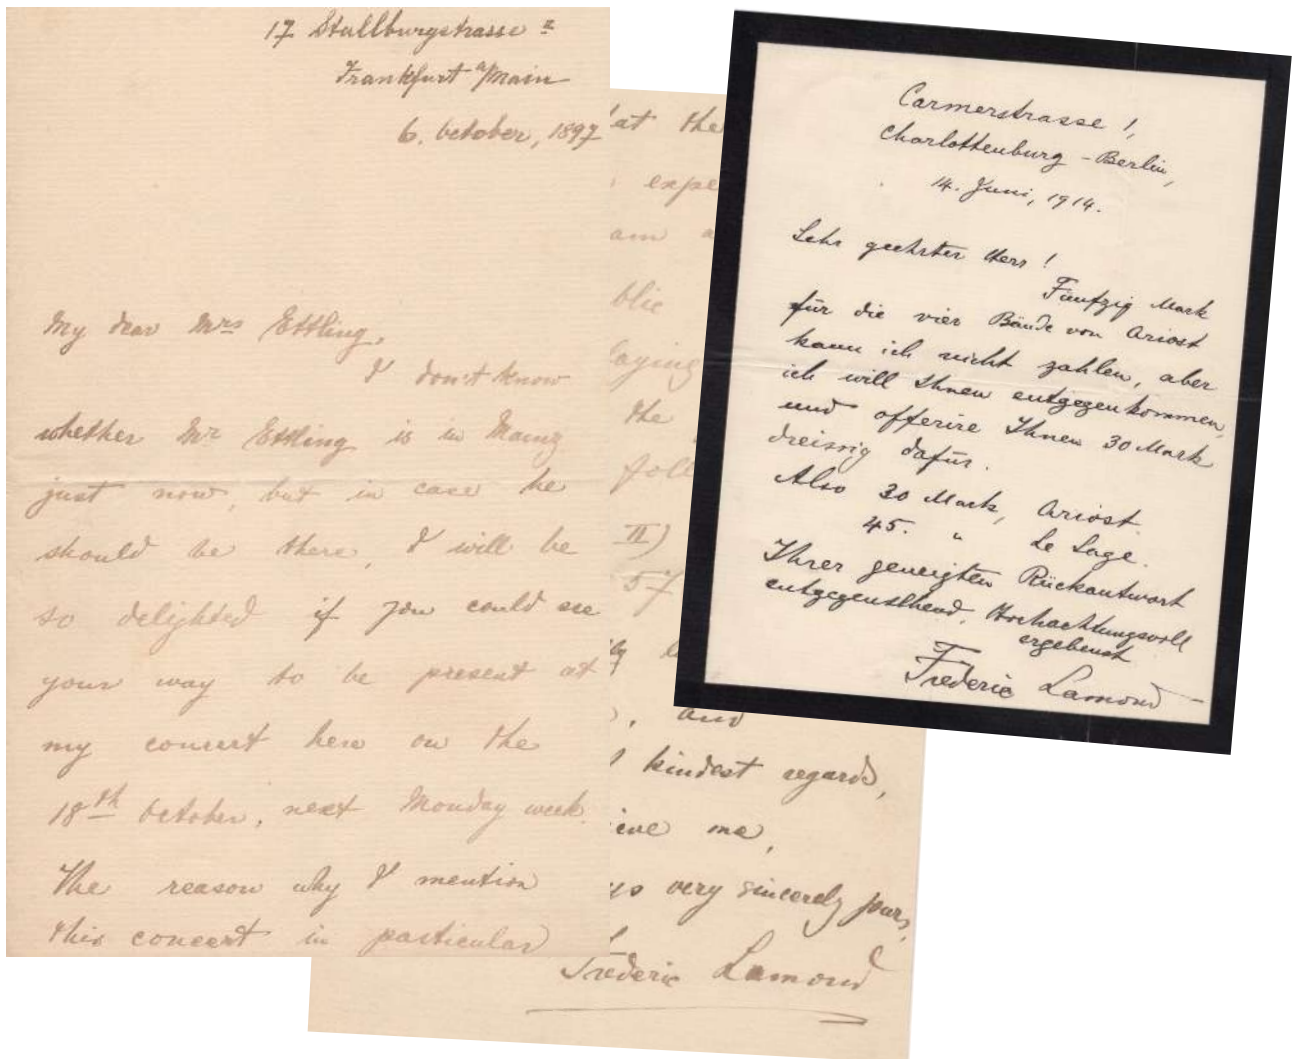 17 Stallburgstrasse II
Frankfurt a/Main
6. October, 1897
My dear Mrs Ettling,
I don't know
whether Mr Ettling is in Mainz
just now, but in case he
should be there, I will be
so delighted if you could see
your way to be present at
my concert here on the
18th October, next Monday week.
The reason why I mention
this concert in particular
at the
expe
am a
blic
laying
the
foll
II)
57
, and
kindest regards,
ieve me,
very sincerely yours,
Frederic Lamond
Carmerstrasse 1,
Charlottenburg - Berlin,
14. Juni, 1914.
Sehr geehrter Herr!
Fünfzig Mark
für die vier Bände von Ariost
kann ich nicht zahlen, aber
ich will Ihnen entgegenkommen,
und offerire Ihnen 30 Mark
dreissig dafür.
Also 30 Mark, Ariost.
45. " Le Sage.
Ihrer geneigten Rückantwort
entgegensehend, Hochachtungsvoll
ergebenst
Frederic Lamond